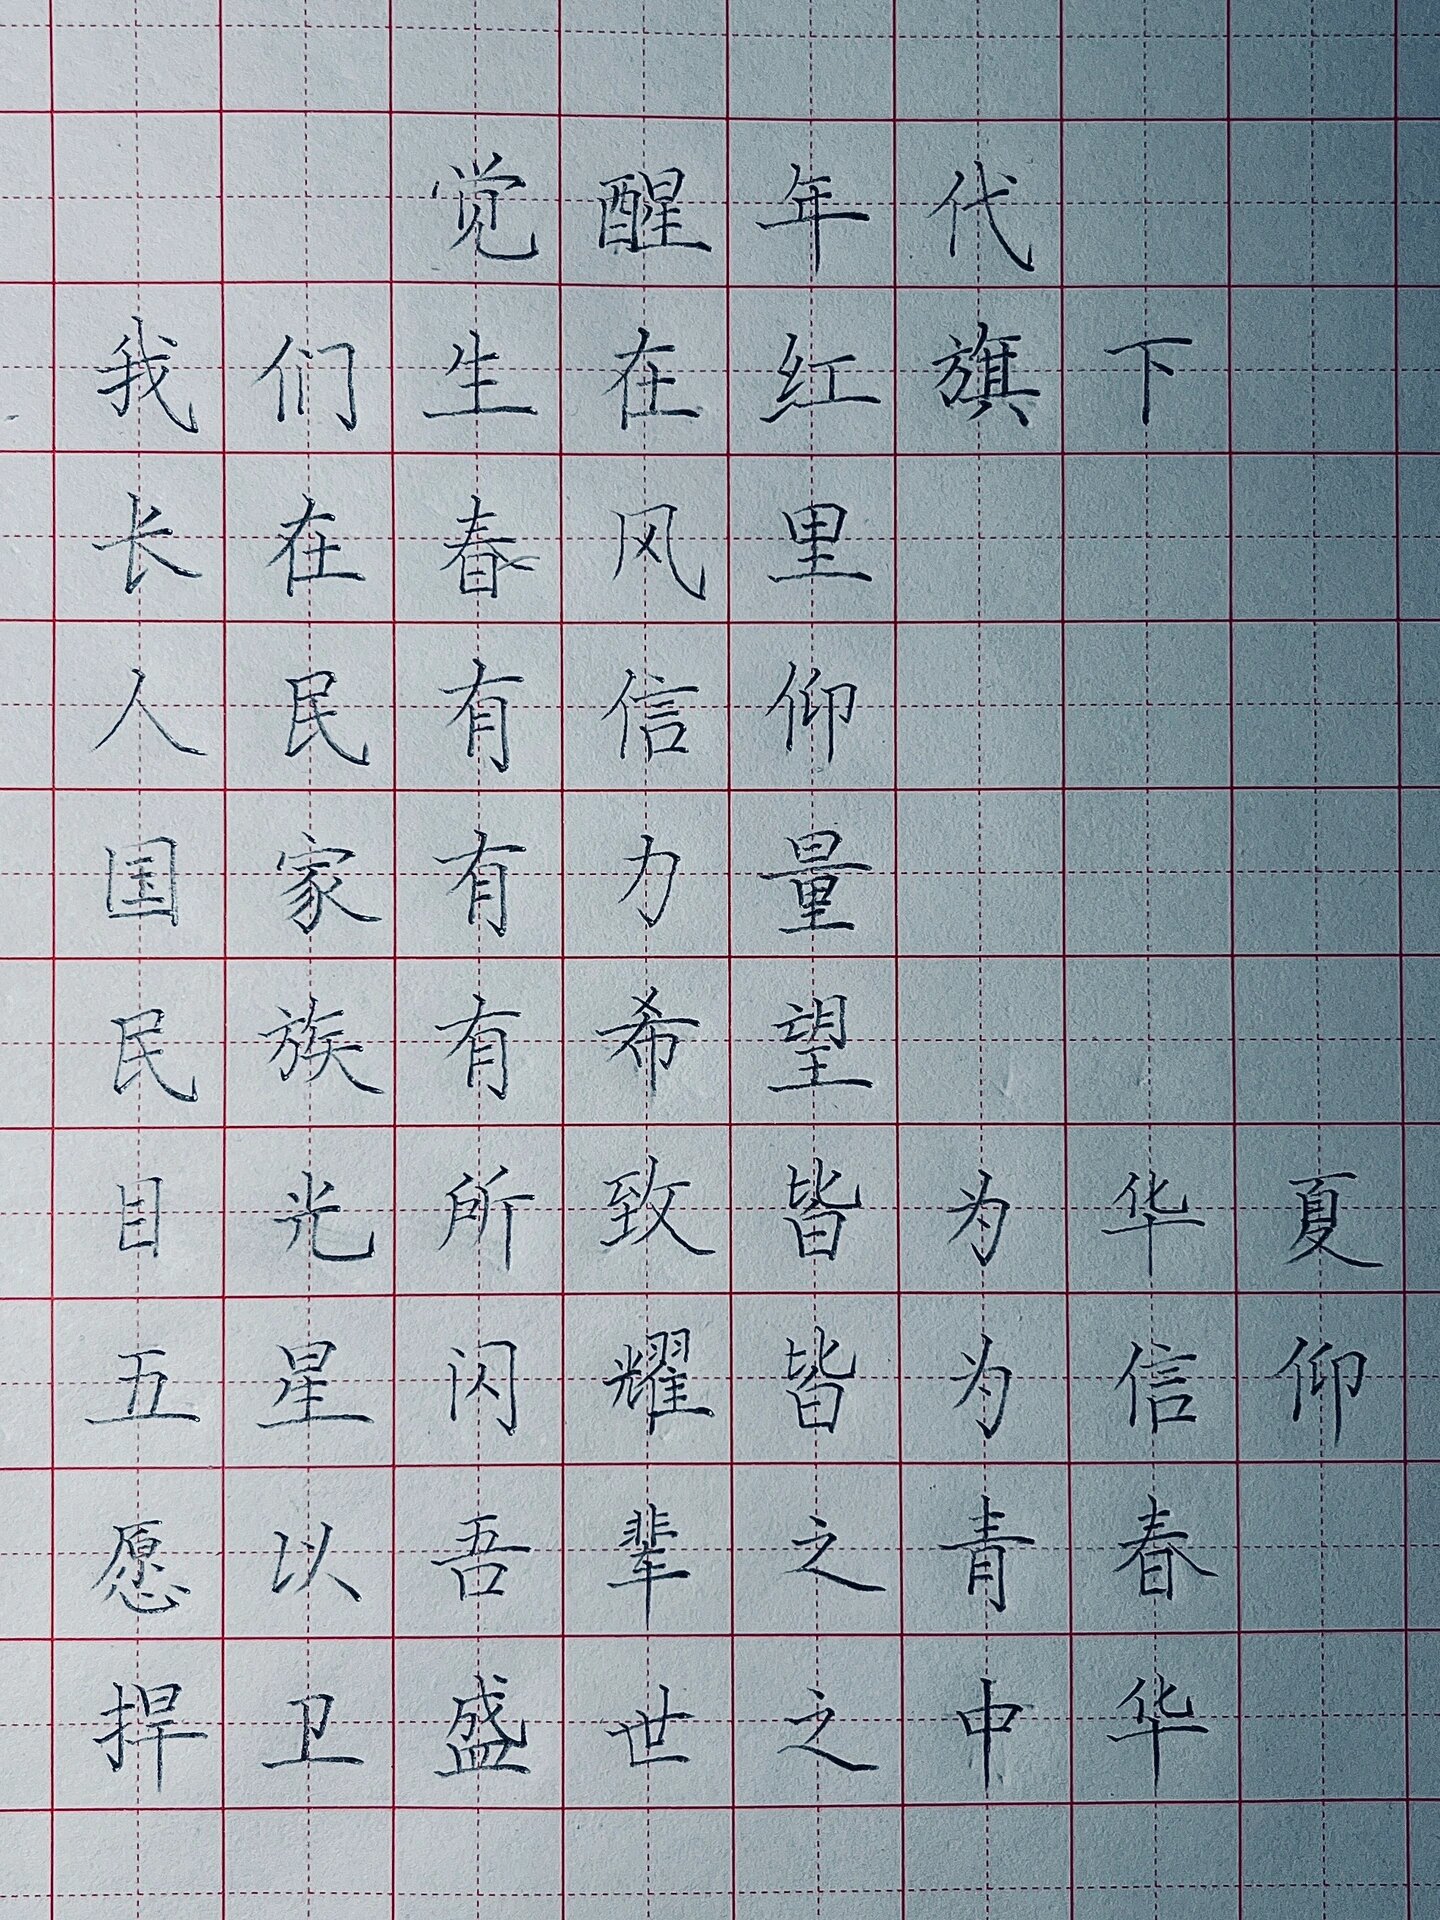 觉醒年代
我们生在红旗下
长在春风里
人民有信仰
国家有力量
民族有希望
目光所致皆为华夏
五星闪耀皆为信仰
愿以吾辈之青春
捍卫盛世之中华